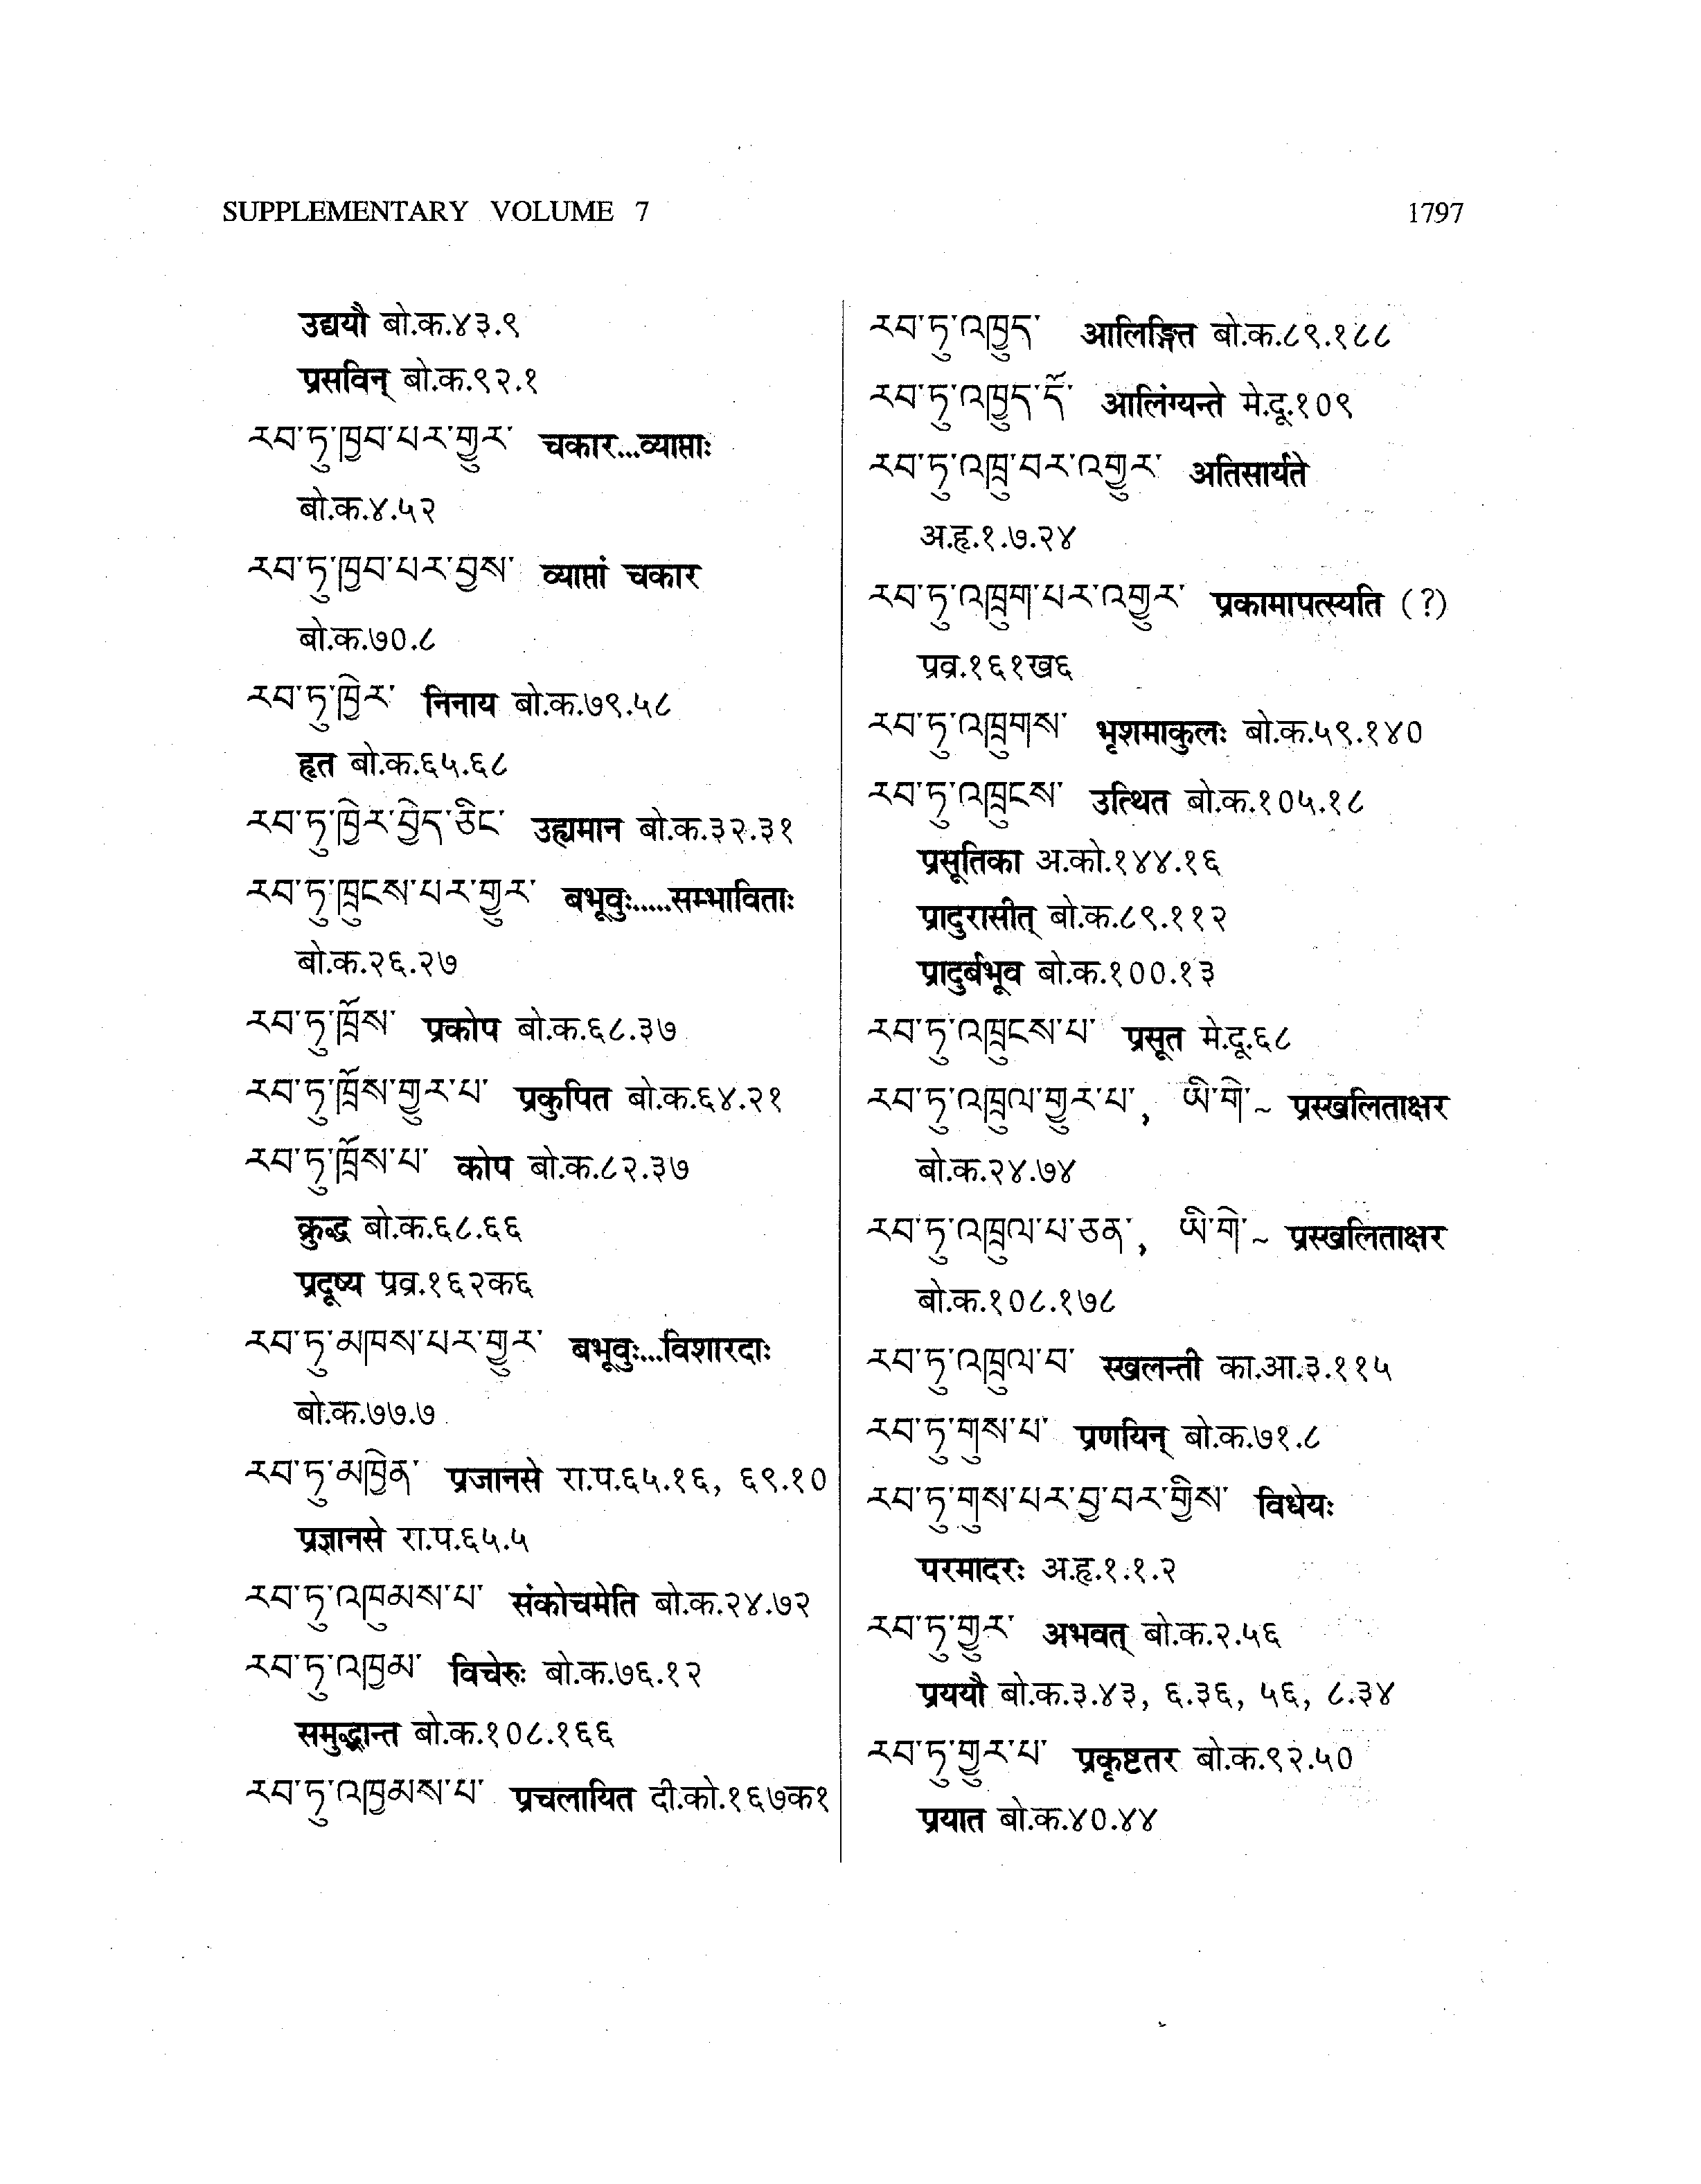 SUPPLEMENTARY VOLUME 7
1797
उद्ययौ बो.क.४३.९
प्रसविन् बो.क.९२.१
རབ་ཏུ་ཁྱབ་པར་གྱུར་ चकार...व्याप्ताः
बो.क.४.५२
རབ་ཏུ་ཁྱབ་པར་བྱས་ व्याप्तां चकार
बो.क.७०.८
རབ་ཏུ་ཁྱེར་ निनाय बो.क.७९.५८
हृत बो.क.६५.६८
རབ་ཏུ་ཁྱེར་བྱེད་ཅིང་ उह्यमान बो.क.३२.३१
རབ་ཏུ་ཁྲུངས་པར་གྱུར་ बभूवुः.....सम्भाविताः
बो.क.२६.२७
རབ་ཏུ་ཁྲོས་ प्रकोप बो.क.६८.३७
རབ་ཏུ་ཁྲོས་གྱུར་པ་ प्रकुपित बो.क.६४.२१
རབ་ཏུ་ཁྲོས་པ་ कोप बो.क.८२.३७
क्रुद्ध बो.क.६८.६६
प्रदूष्य प्रव्र.१६२क६
རབ་ཏུ་མཁས་པར་གྱུར་ बभूवुः...विशारदाः
बो.क.७७.७
རབ་ཏུ་མཁྱེན་ प्रजानसे रा.प.६५.१६, ६९.१०
प्रज्ञानसे रा.प.६५.५
རབ་ཏུ་འཁུམས་པ་ संकोचमेति बो.क.२४.७२
རབ་ཏུ་འཁྱམ་ विचेरुः बो.क.७६.१२
समुद्भ्रान्त बो.क.१०८.१६६
རབ་ཏུ་འཁྱམས་པ་ प्रचलायित दी.को.१६७क१
རབ་ཏུ་འཁྱུད་ आलिङ्गित बो.क.८९.१८८
རབ་ཏུ་འཁྱུད་དོ་ आलिंग्यन्ते मे.दू.१०९
རབ་ཏུ་འཁྲུ་བར་འགྱུར་ अतिसार्यते
अ.हृ.१.७.२४
རབ་ཏུ་འཁྲུག་པར་འགྱུར་ प्रकामापत्स्यति (?)
प्रव्र.१६१ख६
རབ་ཏུ་འཁྲུགས་ भृशमाकुलः बो.क.५९.१४०
རབ་ཏུ་འཁྲུངས་ उत्थित बो.क.१०५.१८
प्रसूतिका अ.को.१४४.१६
प्रादुरासीत् बो.क.८९.११२
प्रादुर्बभूव बो.क.१००.१३
རབ་ཏུ་འཁྲུངས་པ་ प्रसूत मे.दू.६८
རབ་ཏུ་འཁྲུལ་གྱུར་པ་, ཡི་གེ་~ प्रस्खलिताक्षर
बो.क.२४.७४
རབ་ཏུ་འཁྲུལ་པ་ཅན་, ཡི་གེ་~ प्रस्खलिताक्षर
बो.क.१०८.१७८
རབ་ཏུ་འཁྲུལ་བ་ स्खलन्ती का.आ.३.११५
རབ་ཏུ་གུས་པ་ प्रणयिन् बो.क.७१.८
རབ་ཏུ་གུས་པར་བྱ་བར་གྱིས་ विधेयः
परमादरः अ.हृ.१.१.२
རབ་ཏུ་གྱུར་ अभवत् बो.क.२.५६
प्रययौ बो.क.३.४३, ६.३६, ५६, ८.३४
རབ་ཏུ་གྱུར་པ་ प्रकृष्टतर बो.क.९२.५०
प्रयात बो.क.४०.४४